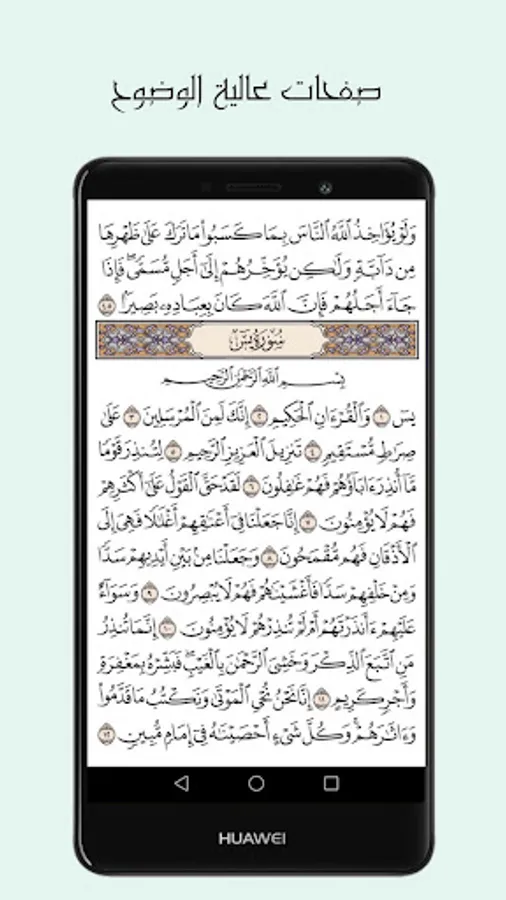 صفحات عالية الوضوح
وَلَوْ يُؤَاخِذُ ٱللَّهُ ٱلنَّاسَ بِمَا كَسَبُوا۟ مَا تَرَكَ عَلَىٰ ظَهْرِهَا
مِن دَآبَّةٍ وَلَـٰكِن يُؤَخِّرُهُمْ إِلَىٰٓ أَجَلٍ مُّسَمًّى ۖ فَإِذَا
جَآءَ أَجَلُهُمْ فَإِنَّ ٱللَّهَ كَانَ بِعِبَادِهِۦ بَصِيرًۢا ٤٥
سُورَةُ يسٓ
بِسْمِ ٱللَّهِ ٱلرَّحْمَـٰنِ ٱلرَّحِيمِ
يسٓ ١ وَٱلْقُرْءَانِ ٱلْحَكِيمِ ٢ إِنَّكَ لَمِنَ ٱلْمُرْسَلِينَ ٣ عَلَىٰ
صِرَٰطٍ مُّسْتَقِيمٍ ٤ تَنزِيلَ ٱلْعَزِيزِ ٱلرَّحِيمِ ٥ لِتُنذِرَ قَوْمًا
مَّآ أُنذِرَ ءَابَآؤُهُمْ فَهُمْ غَـٰفِلُونَ ٦ لَقَدْ حَقَّ ٱلْقَوْلُ عَلَىٰٓ أَكْثَرِهِمْ
فَهُمْ لَا يُؤْمِنُونَ ٧ إِنَّا جَعَلْنَا فِىٓ أَعْنَـٰقِهِمْ أَغْلَـٰلًا فَهِىَ إِلَى
ٱلْأَذْقَانِ فَهُم مُّقْمَحُونَ ٨ وَجَعَلْنَا مِنۢ بَيْنِ أَيْدِيهِمْ سَدًّا
وَمِنْ خَلْفِهِمْ سَدًّا فَأَغْشَيْنَـٰهُمْ فَهُمْ لَا يُبْصِرُونَ ٩ وَسَوَآءٌ
عَلَيْهِمْ ءَأَنذَرْتَهُمْ أَمْ لَمْ تُنذِرْهُمْ لَا يُؤْمِنُونَ ١٠ إِنَّمَا تُنذِرُ
مَنِ ٱتَّبَعَ ٱلذِّكْرَ وَخَشِىَ ٱلرَّحْمَـٰنَ بِٱلْغَيْبِ ۖ فَبَشِّرْهُ بِمَغْفِرَةٍ
وَأَجْرٍ كَرِيمٍ ١١ إِنَّا نَحْنُ نُحْىِ ٱلْمَوْتَىٰ وَنَكْتُبُ مَا قَدَّمُوا۟
وَءَاثَـٰرَهُمْ ۚ وَكُلَّ شَىْءٍ أَحْصَيْنَـٰهُ فِىٓ إِمَامٍ مُّبِينٍ ١٢
HUAWEI